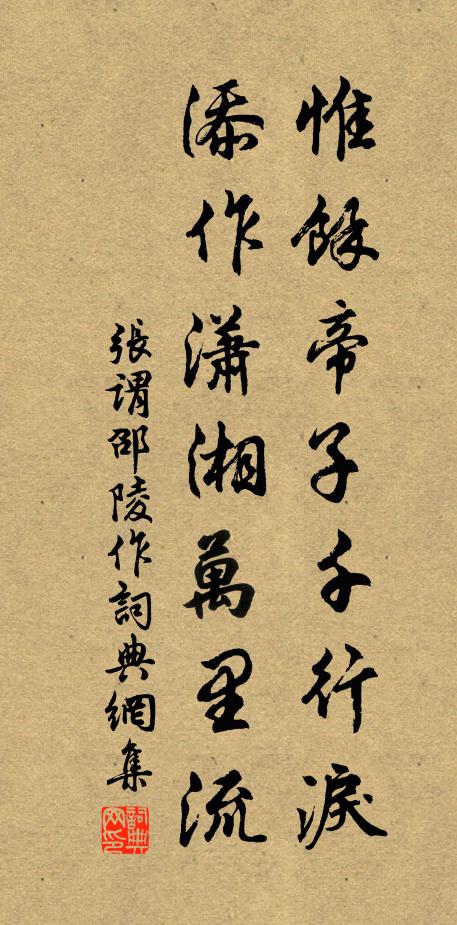 惟餘帝子千行淚
添作瀟湘萬里流
張謂邵陵作詞典網集
詞典网印